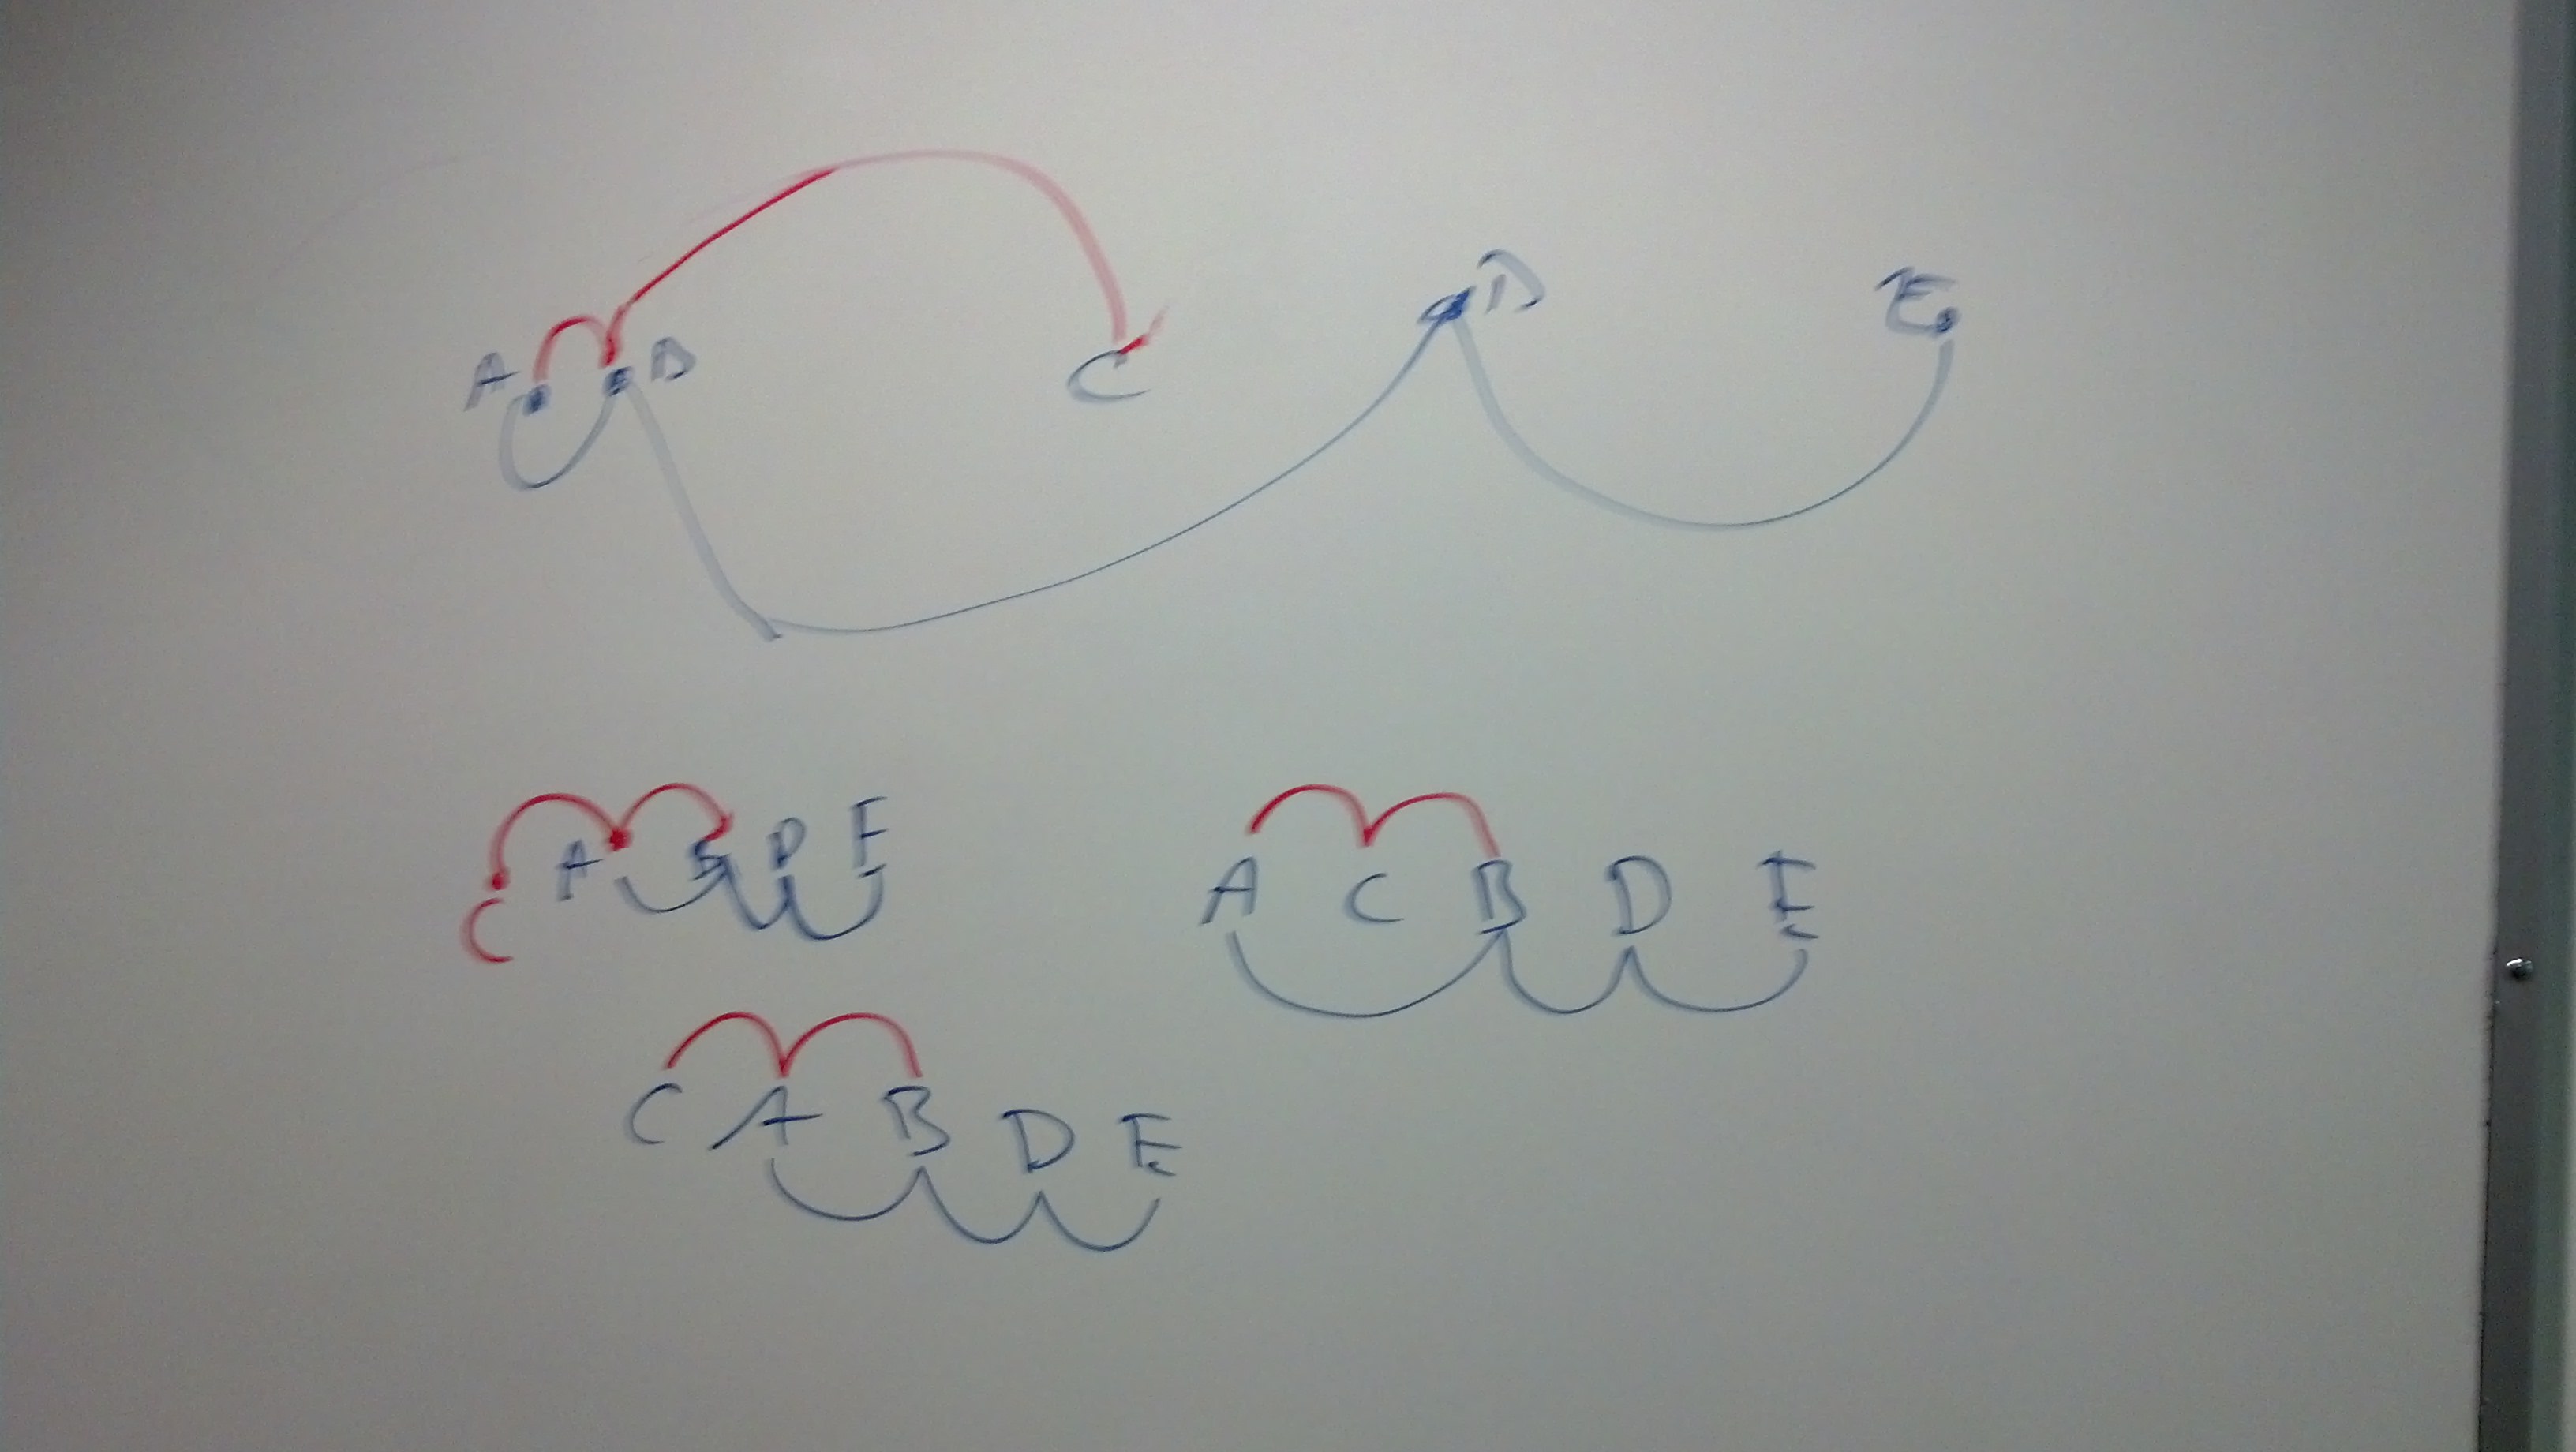 A B C D E
C A B D E
A C B D E
C A B D E